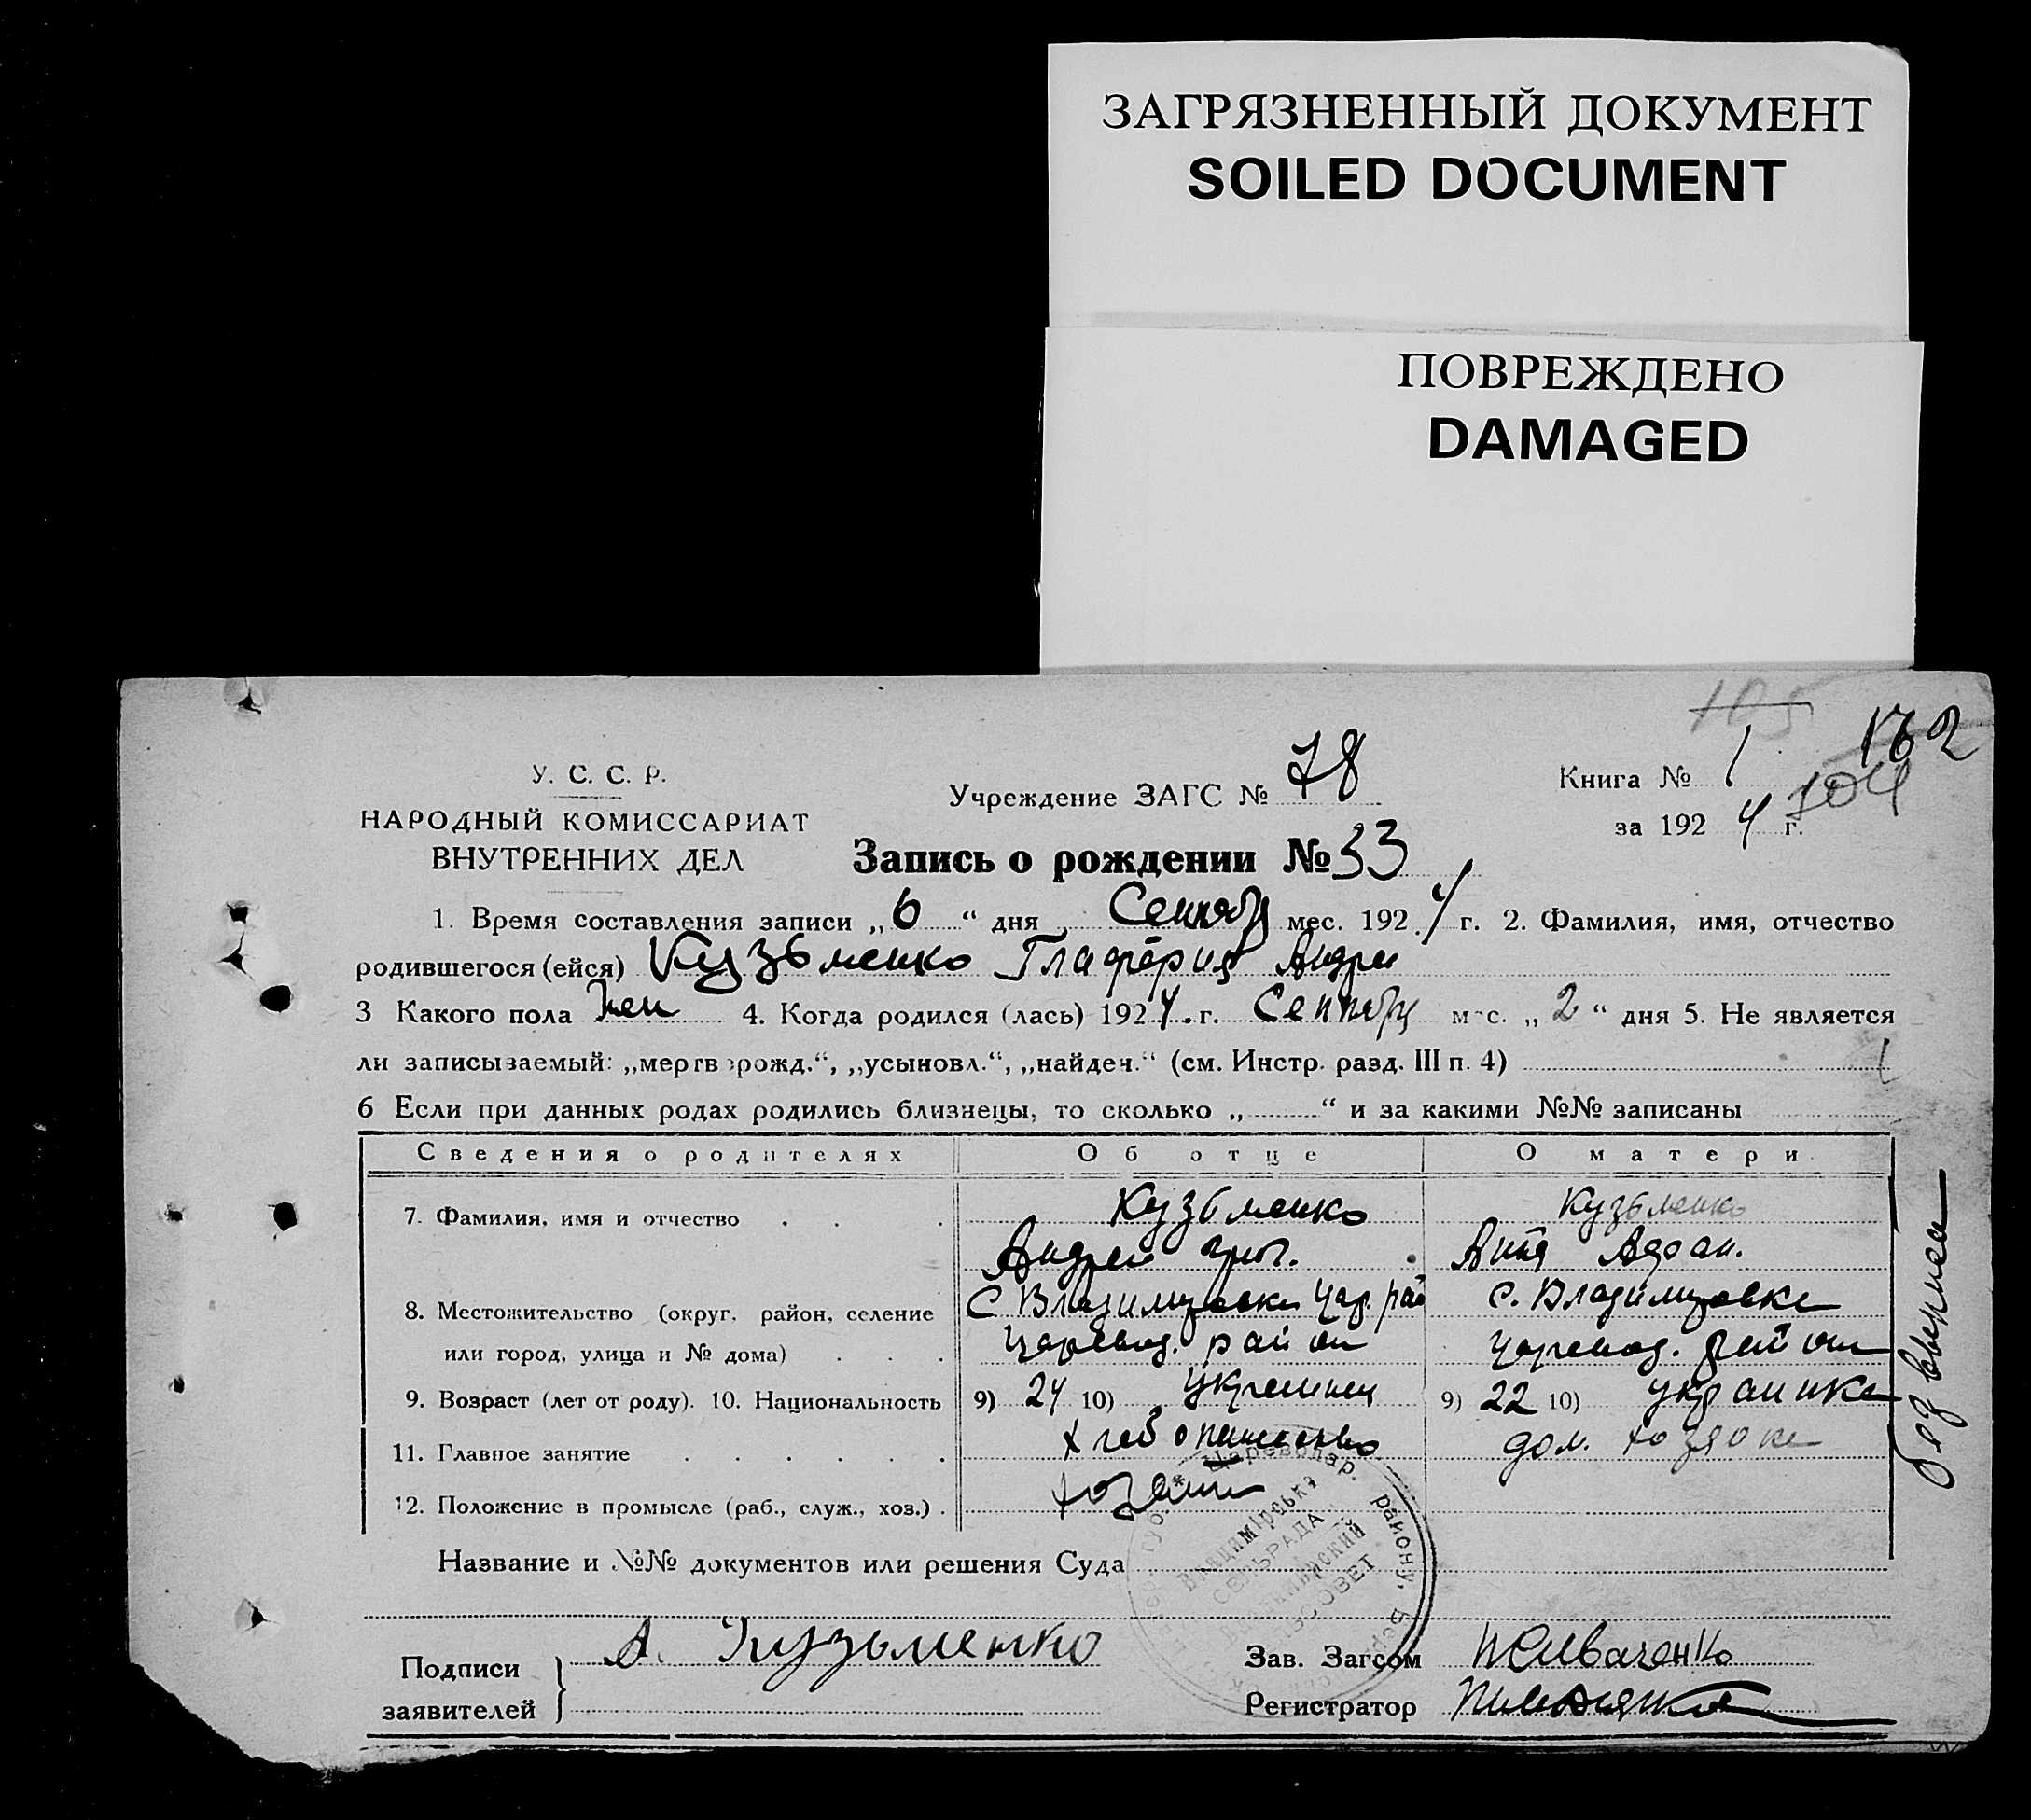 ЗАГРЯЗНЕННЫЙ ДОКУМЕНТ
SOILED DOCUMENT
ПОВРЕЖДЕНО
DAMAGED
105 162
У. С. С. Р. Учреждение ЗАГС № 78 Книга № 1 104
НАРОДНЫЙ КОМИССАРИАТ за 192 4 г.
ВНУТРЕННИХ ДЕЛ Запись о рождении № 33
1. Время составления записи „ 6 “ дня Сентябр мес. 192 4 г. 2. Фамилия, имя, отчество
родившегося (ейся) Кузьменко Андре
3 Какого пола жен 4. Когда родился (лась) 192 4. г. Сентябр мес. „ 2 “ дня 5. Не является
ли записываемый: „мертворожд.“, „усыновл.“, „найден.“ (см. Инстр. разд. III п. 4)
6 Если при данных родах родились близнецы, то сколько „ “ и за какими №№ записаны
Сведения о родителях Об отце О матери
7. Фамилия, имя и отчество Кузьменко Кузьменко
Андрей Григ.
8. Местожительство (округ, район, селение С Владимировки Цар. рай с. Владимировка
или город, улица и № дома) район район
9. Возраст (лет от роду). 10. Национальность 9) 24 10) украинец 9) 22 10) украинка
11. Главное занятие хлебопашество дом. хозяйка
12. Положение в промысле (раб., служ., хоз.) хозяин
Название и №№ документов или решения Суда
Цареводар. району,
СЕЛЬРАДА
Подписи А. Кузьменко Зав. Загсом
заявителей Регистратор